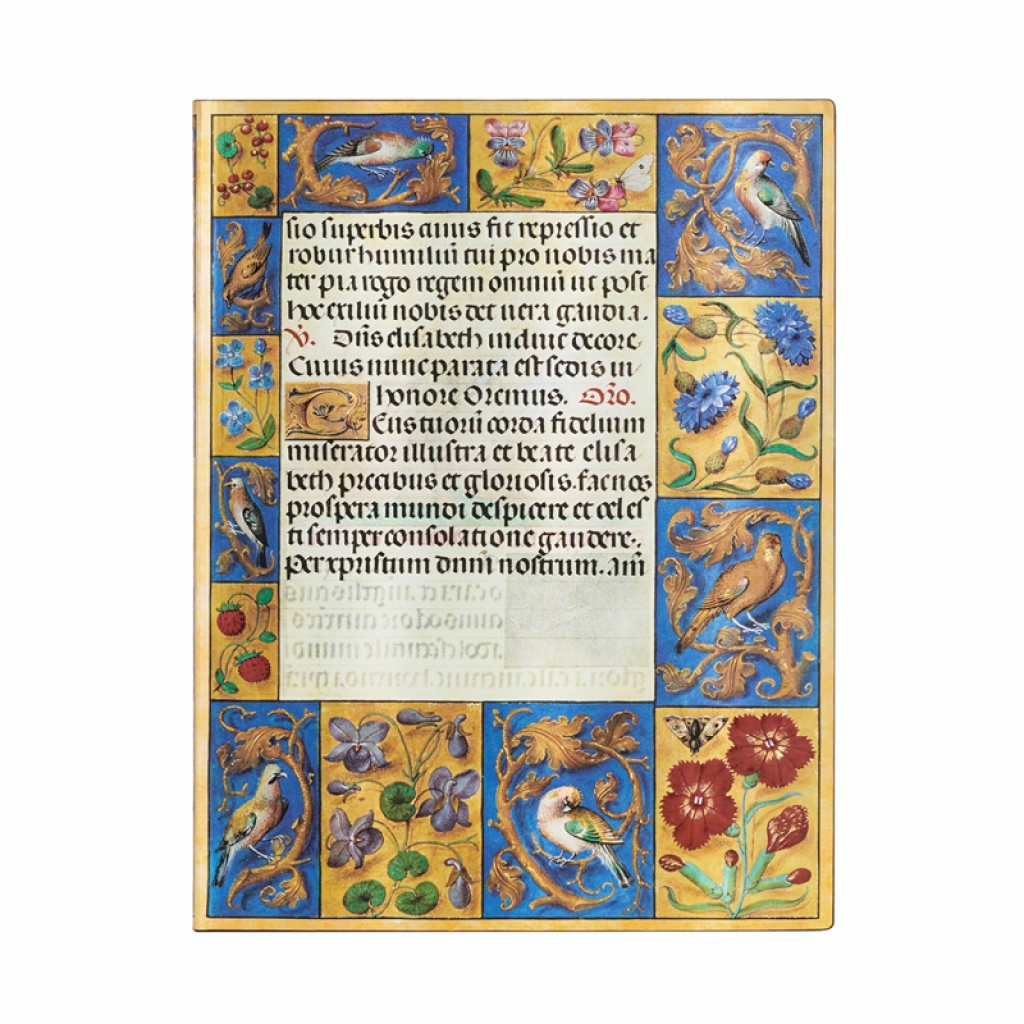 sio superbis cuius fit repressio et
robur humiliū tui pro nobis ma
ter pia rogo regem omniū ut post
hoc exiliū nobis det uera gaudia.
V. Dn̄s elisabeth induit decore
Cuius nunc parata est sedis in
honore Oremus. Or̄o.
DEus tuorū corda fidelium
miserator illustra et beate elisa
beth precibus et gloriosis. fac nos
prospera mundi despicere et celes
ti semper consolatione gaudere.
Per xpristum dnm̄ nostrum. am̄